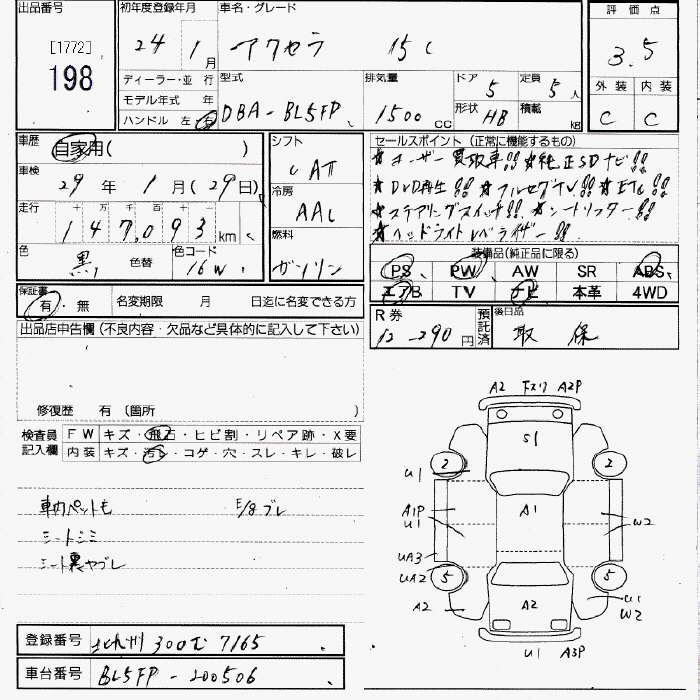 出品番号 [1772] 198
初年度登録年月 24 1月
車名・グレード アクセラ 15C
評価点 3.5
外装 内装
C C
ディーラー・並行
モデル年式 年
ハンドル 左・右
型式 DBA-BL5FP
排気量 1500 CC
ドア 5 定員 5人
形状 HB 積載 kg
車歴 自家用( )
車検 29年 1月(29日)
走行 十万千百十
147,093 km
色 黒 色替 色コード 16W
シフト AT
冷房 AAC
燃料 ガソリン
セールスポイント(正常に機能するもの)
★ユーザー買取車!! ★純正SDナビ!!
★DVD再生!! ★フルセグTV!! ★ETC!!
★ステアリングスイッチ!! ★シートリフター!!
★ヘッドライトレベライザー!!
装備品(純正品に限る)
PS PW AW SR ABS
エアB TV ナビ 本革 4WD
保証書 有・無 名変期限 月 日迄に名変できる方
R券 12,290円 預託済 後日品 取 保
出品店申告欄(不良内容・欠品など具体的に記入して下さい)
修復歴 有〔箇所 〕
検査員記入欄
FW キズ・飛石・ヒビ割・リペア跡・X要
内装 キズ・汚レ・コゲ・穴・スレ・キレ・破レ
車内ペット毛 E/gブレ
シートシミ
シート裏ヤブレ
A2 下スリ A2P
S1
2 2
U1
A1P A1
U1 W2
UA3
UA2 5 5
A2 A2 U1
W2
U1 A3P
登録番号 北九州 300 む 7165
車台番号 BL5FP-200506